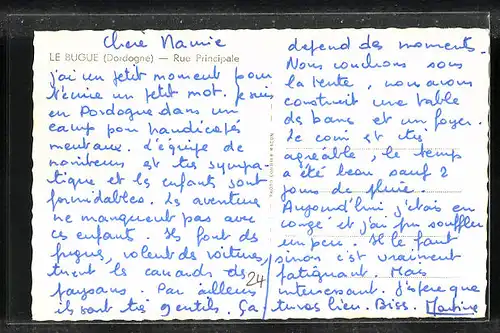 Chère Namie
LE BUGUE (Dordogne) — Rue Principale
j'ai un petit moment pour
t'écrire un petit mot. Je suis
en Dordogne dans un
camp pour handicapés
mentaux. L'équipe de
moniteurs est très sympa-
tique et les enfants sont
formidables. Les aventures
ne manquent pas avec
ces enfants. Ils font des
fugues, volent des voitures,
tuent les canards des
paysans. Par ailleurs
ils sont très gentils. Ça
24
dépend des moments.
Nous couchons sous
la tente, nous avons
construit une table
des bancs et un foyer.
Le coin est très
agréable, le temps
a été beau sauf 2
jours de pluie.
Aujourd'hui j'étais en
congé et j'ai pu souffler
un peu. Il le faut
sinon c'est vraiment
fatiguant. Mais
interessant. J'espère que
tu vas bien. Biss. Martine